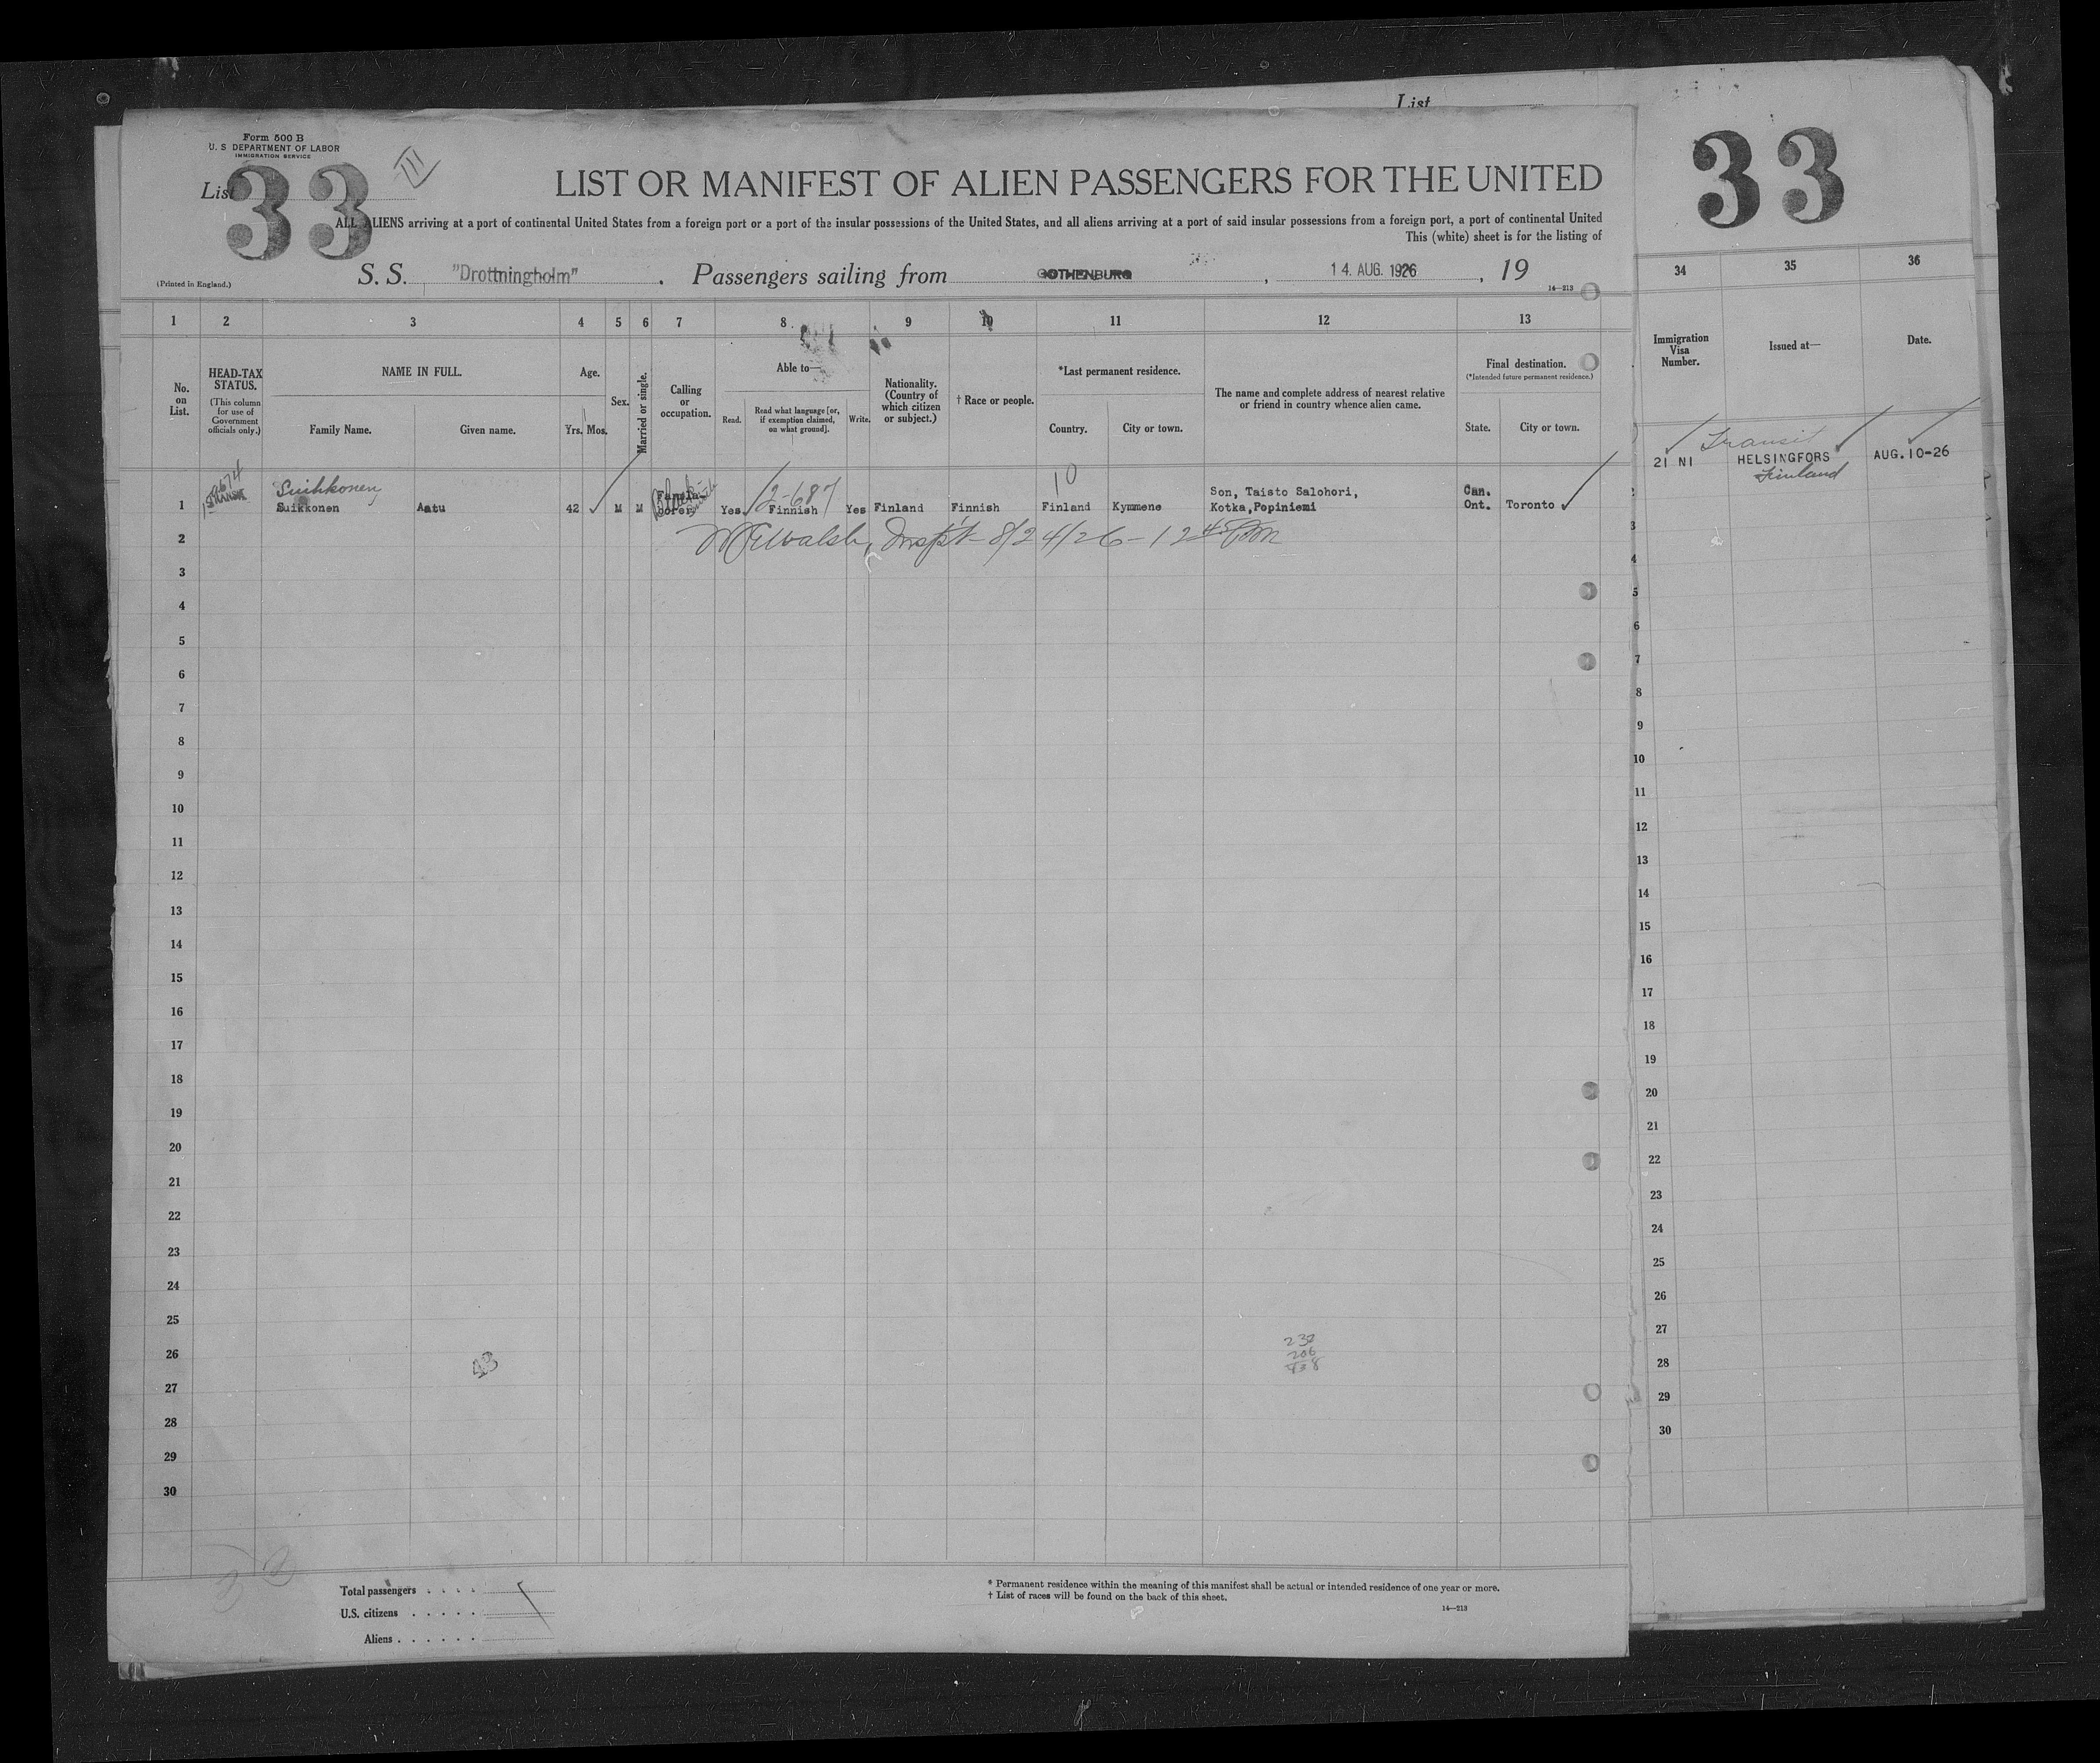 List
Form 500 B
U. S DEPARTMENT OF LABOR
IMMIGRATION SERVICE
List 33
III
33
LIST OR MANIFEST OF ALIEN PASSENGERS FOR THE UNITED
ALL ALIENS arriving at a port of continental United States from a foreign port or a port of the insular possessions of the United States, and all aliens arriving at a port of said insular possessions from a foreign port, a port of continental United
This (white) sheet is for the listing of
S. S. "Drottningholm" . Passengers sailing from GOTHENBURG , 14. AUG. 1926 , 19
(Printed in England.)
14—213
1 2 3 4 5 6 7 8 9 10 11 12 13
34 35 36
No. on List.
HEAD-TAX STATUS.
(This column for use of Government officials only.)
NAME IN FULL.
Family Name. Given name.
Age.
Yrs. Mos.
Sex.
Married or single.
Calling or occupation.
Able to—
Read. Read what language [or, if exemption claimed, on what ground]. Write.
Nationality. (Country of which citizen or subject.)
† Race or people.
*Last permanent residence.
Country. City or town.
The name and complete address of nearest relative or friend in country whence alien came.
Final destination.
(*Intended future permanent residence.)
State. City or town.
Immigration Visa Number.
Issued at—
Date.
Transit
21 NI HELSINGFORS AUG. 10-26
Finland
TRANSIT
Suihkonen
12-687
10
1 Suikkonen Aatu 42 M M Yes Finnish Yes Finland Finnish Finland Kymmene Son, Taisto Salohori, Kotka, Popiniemi Can. Ont. Toronto
2 Walsh, Inspt- 8/24/26 - 12 45 Pm
3
4
5
6
7
8
9
10
11
12
13
14
15
16
17
18
19
20
21
22
23
24
25
26
27
28
29
30
43
232
206
438
3
4
5
6
7
8
9
10
11
12
13
14
15
16
17
18
19
20
21
22
23
24
25
26
27
28
29
30
Total passengers . . . .
U.S. citizens . . . . .
Aliens . . . . . .
* Permanent residence within the meaning of this manifest shall be actual or intended residence of one year or more.
† List of races will be found on the back of this sheet.
14—213